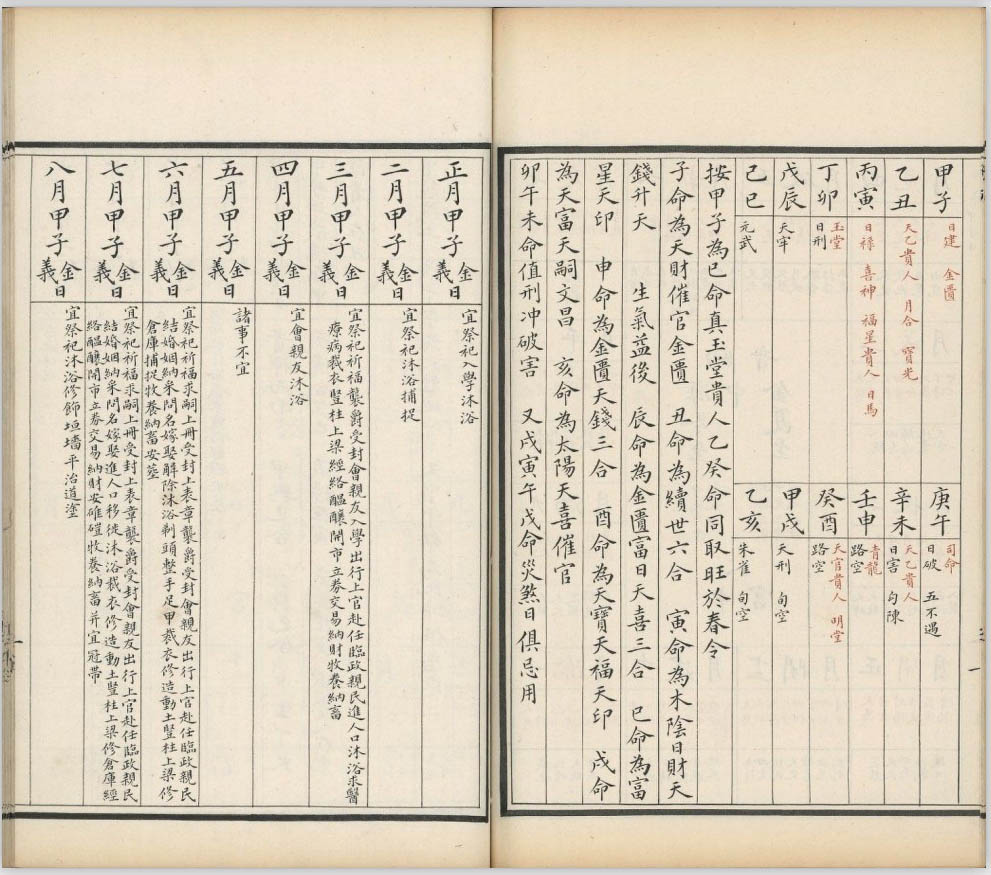 甲子
日建 金匱
乙丑
天乙貴人 月合 寶光
丙寅
日祿 喜神 福星貴人 日馬
丁卯
玉堂
日刑
戊辰
天牢
己巳
元武
庚午
司命
日破 五不遇
辛未
天乙貴人
日害 勾陳
壬申
青龍
路空
癸酉
天官貴人 明堂
路空
甲戌
天刑 旬空
乙亥
朱雀 旬空
按甲子為己命真玉堂貴人乙癸命同取旺於春令
子命為天財催官金匱 丑命為續世六合 寅命為木陰日財天
錢升天 生氣益後 辰命為金匱富日天喜三合 巳命為富
星天印 申命為金匱天錢三合 酉命為天寶天福天印 戌命
為天富天嗣文昌 亥命為太陽天喜催官
卯午未命值刑冲破害 又戌寅午戊命災煞日俱忌用
正月甲子金義日
宜祭祀入學沐浴
二月甲子金義日
宜祭祀沐浴捕捉
三月甲子金義日
宜祭祀祈福襲爵受封會親友入學出行上官赴任臨政親民進人口沐浴求醫
療病裁衣豎柱上梁經絡醞釀開市立券交易納財牧養納畜
四月甲子金義日
宜會親友沐浴
五月甲子金義日
諸事不宜
六月甲子金義日
宜祭祀祈福求嗣上冊受封上表章襲爵受封會親友出行上官赴任臨政親民
結婚姻納采問名嫁娶解除沐浴剃頭整手足甲裁衣修造動土豎柱上梁修
倉庫捕捉牧養納畜安葬
七月甲子金義日
宜祭祀祈福求嗣上冊受封上表章襲爵受封會親友出行上官赴任臨政親民
結婚姻納采問名嫁娶進人口移徙沐浴裁衣修造動土豎柱上梁修倉庫經
絡醞釀開市立券交易納財安碓磑牧養納畜并宜冠帶
八月甲子金義日
宜祭祀沐浴修飾垣墻平治道塗